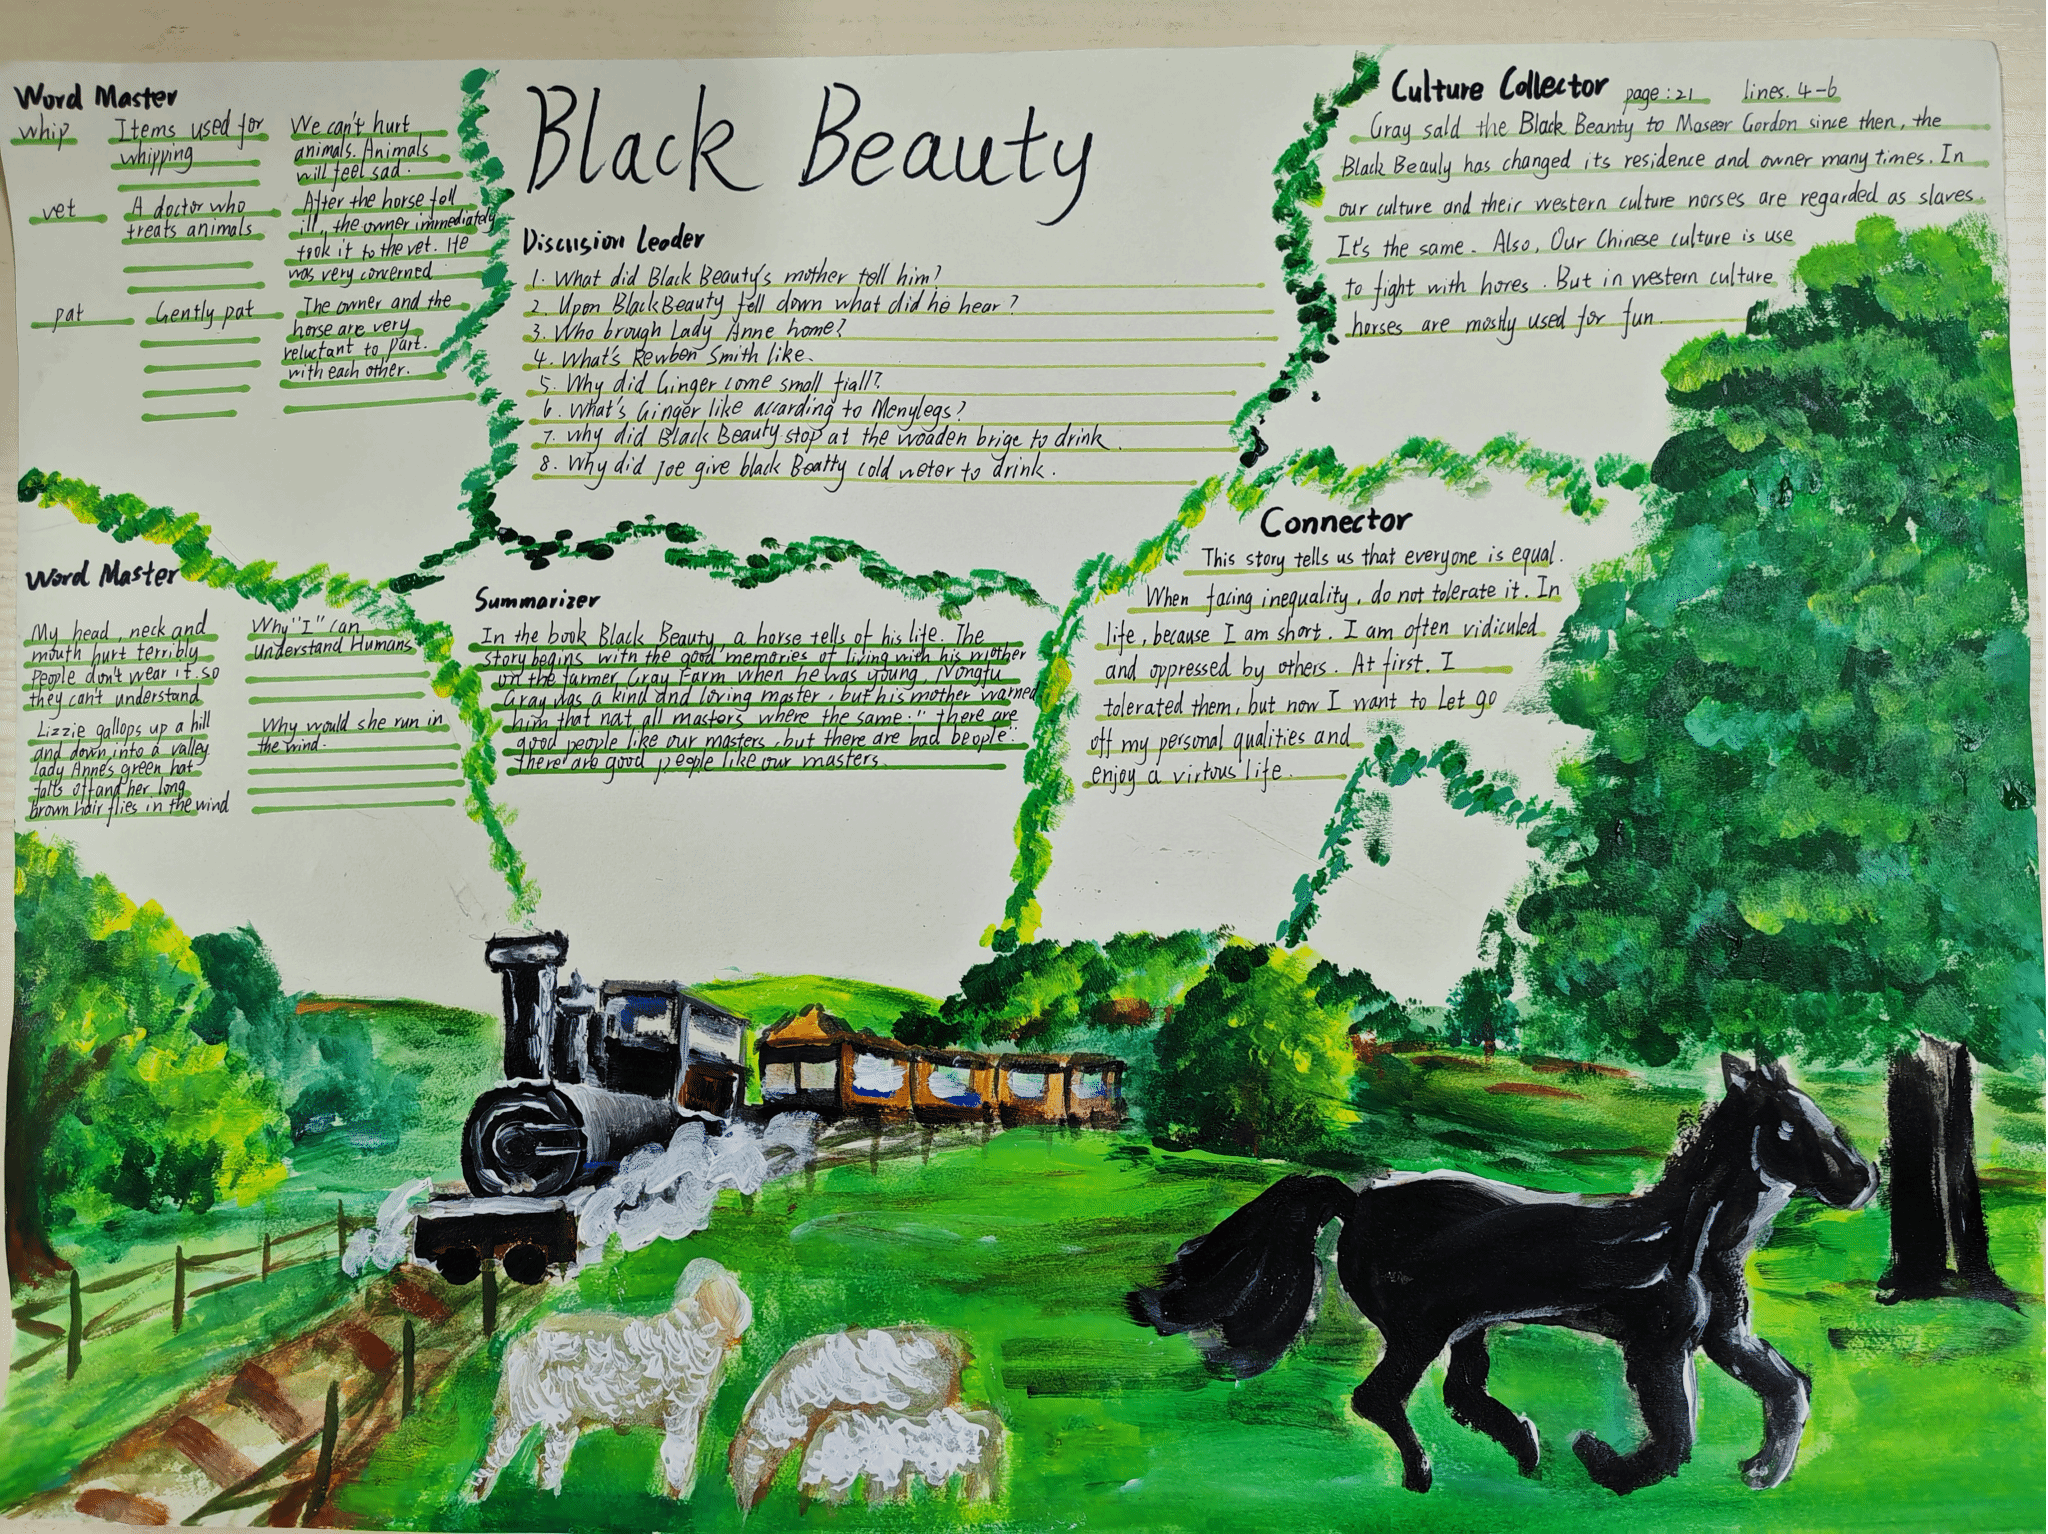 Black Beauty
Word Master
whip
Items used for
whipping
We can't hurt
animals. Animals
will feel sad.
vet
A doctor who
treats animals
After the horse fell
ill, the owner immediately
took it to the vet. He
was very concerned
pat
Gently pat
The owner and the
horse are very
reluctant to part.
with each other.
Discussion Leader
1. What did Black Beauty's mother tell him?
2. Upon Black Beauty fell down what did he hear?
3. Who brough Lady Anne home?
4. What's Rewben Smith like.
5. Why did Ginger come small fiall?
6. What's Ginger like according to Menylegs?
7. why did Black Beauty stop at the wooden brige to drink.
8. Why did Joe give black Beatty cold weter to drink.
Culture Collector page:21 lines. 4-6
Gray sald the Black Beanty to Maseer Gordon since then, the
Black Beauly has changed its residence and owner many times. In
our culture and their western culture norses are regarded as slaves.
It's the same. Also, Our Chinese culture is use
to fight with hores. But in western culture
horses are mostly used for fun.
Word Master
My head, neck and
mouth hurt terribly
people don't wear it. so
they can't understand
Why "I" can
understand Humans
Lizzie gallops up a hill
and down, into a valley
lady Anne's green hat
falts off and her long
brown hair flies in the wind
Why would she run in
the wind.
Summarizer
In the book Black Beauty, a horse tells of his life. The
story begins with the good memories of living with his mother
on the farmer Gray Farm when he was young, Nongfu
Gray was a kind and loving master, but his mother warned
him that nat all masters where the same." there are
good people like our masters, but there are bad beople".
there are good people like our masters.
Connector
This story tells us that everyone is equal.
When facing inequality, do not tolerate it. In
life, because I am short. I am often vidiculed
and oppressed by others. At first. I
tolerated them, but now I want to Let go
off my personal qualities and
enjoy a virtous life.